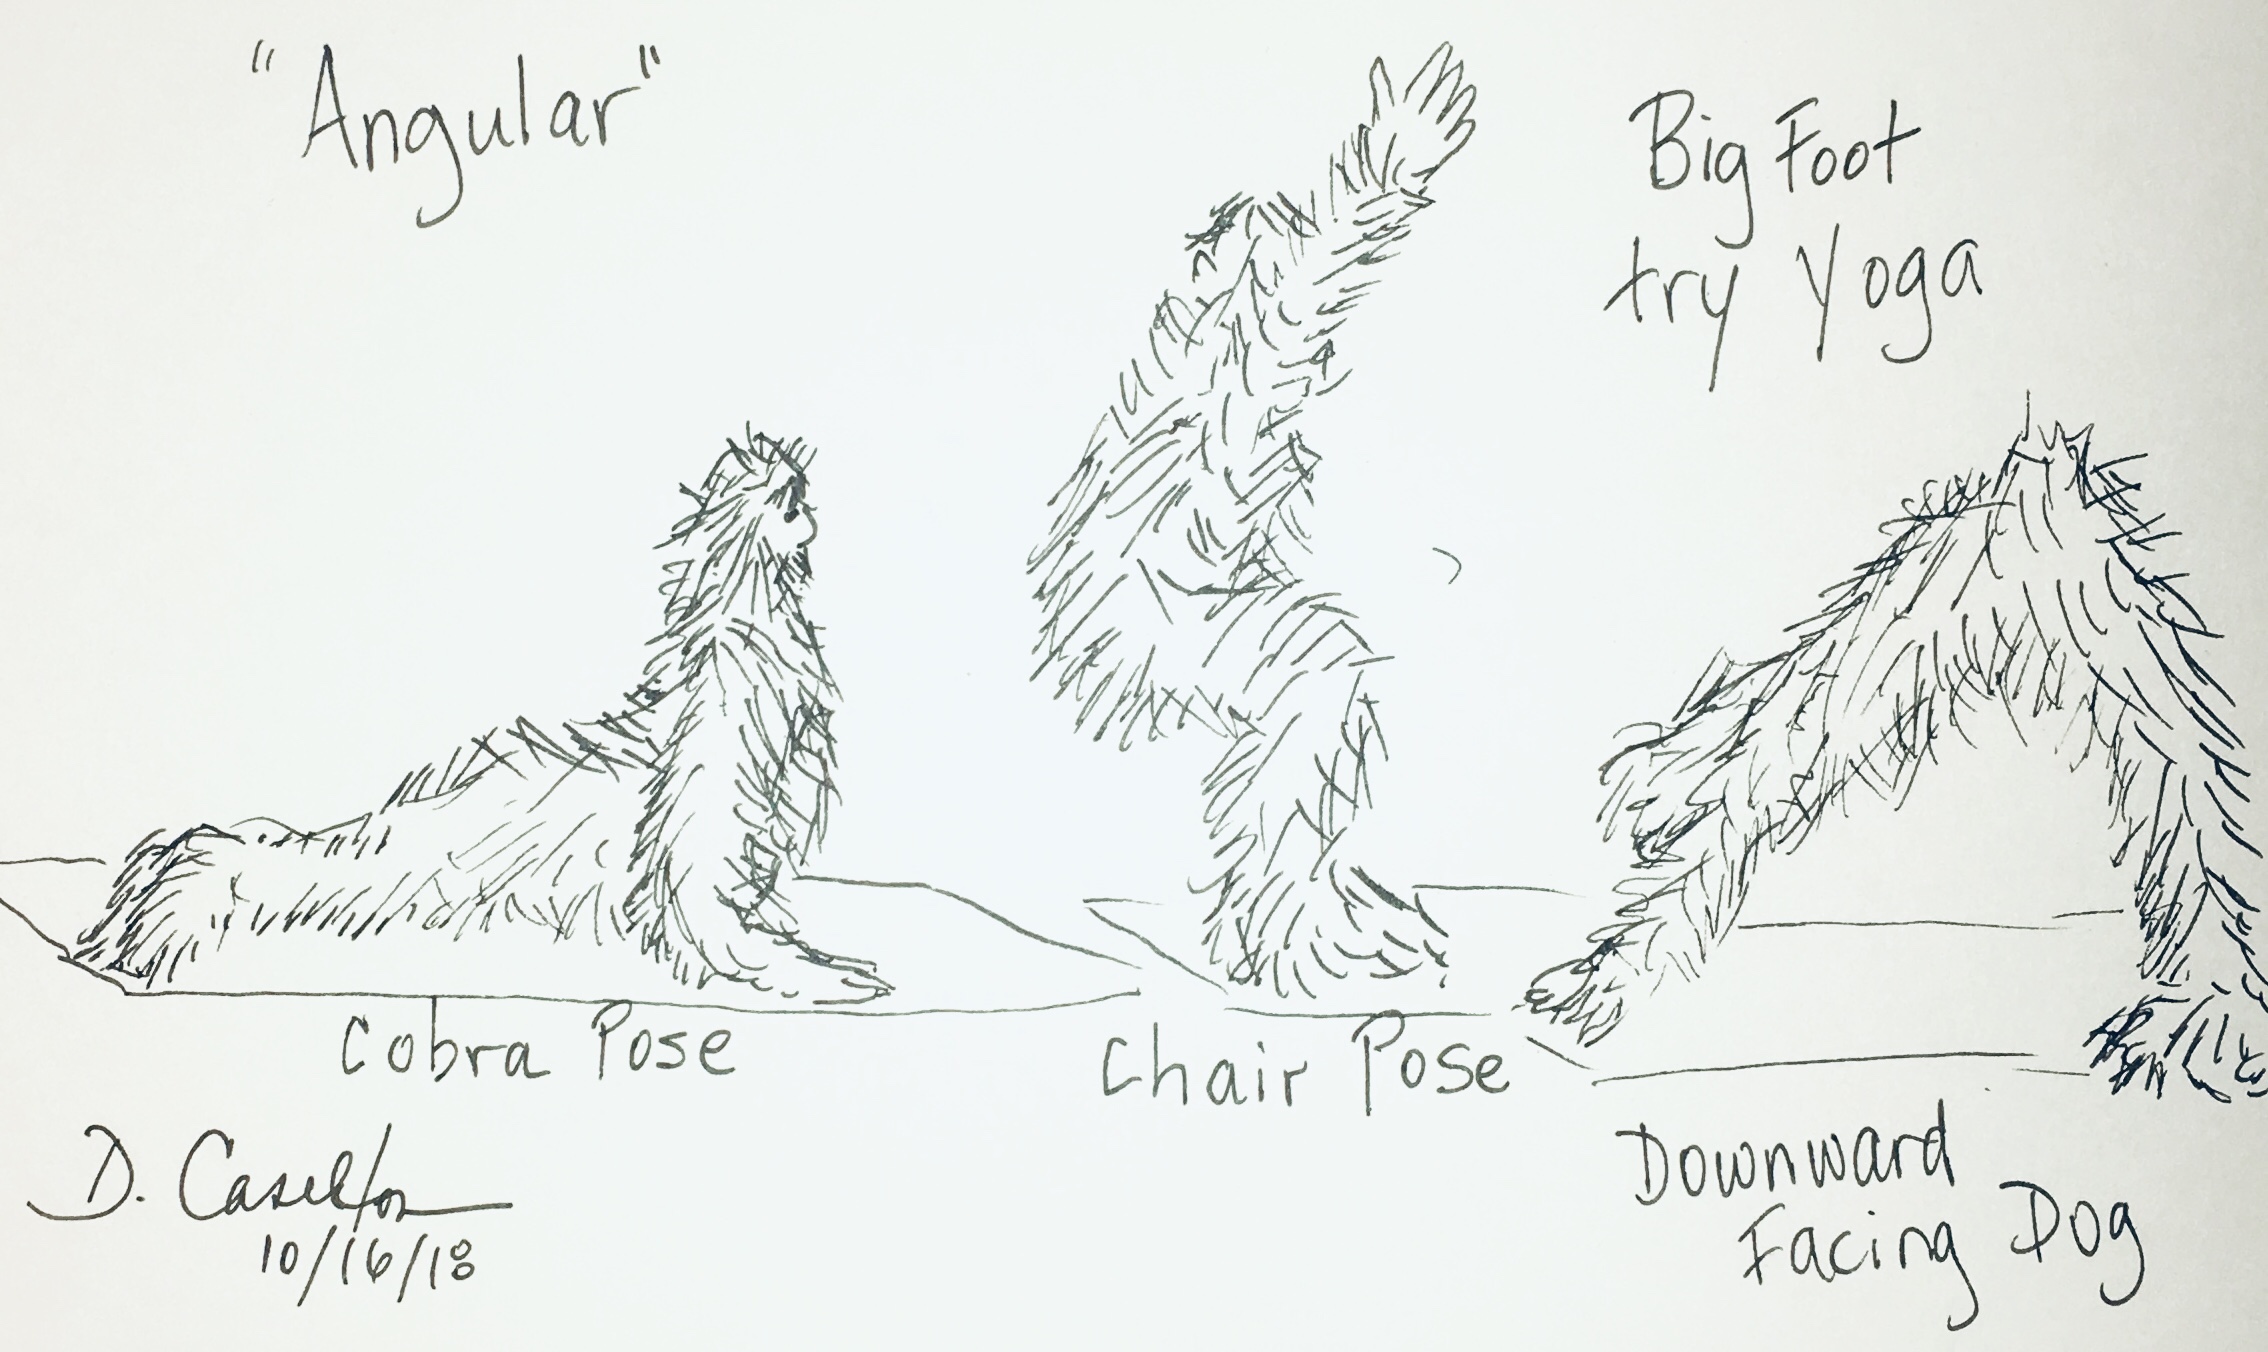 "Angular"
Big Foot
try Yoga
Cobra Pose
Chair Pose
Downward
Facing Dog
D. Caselton
10/16/18